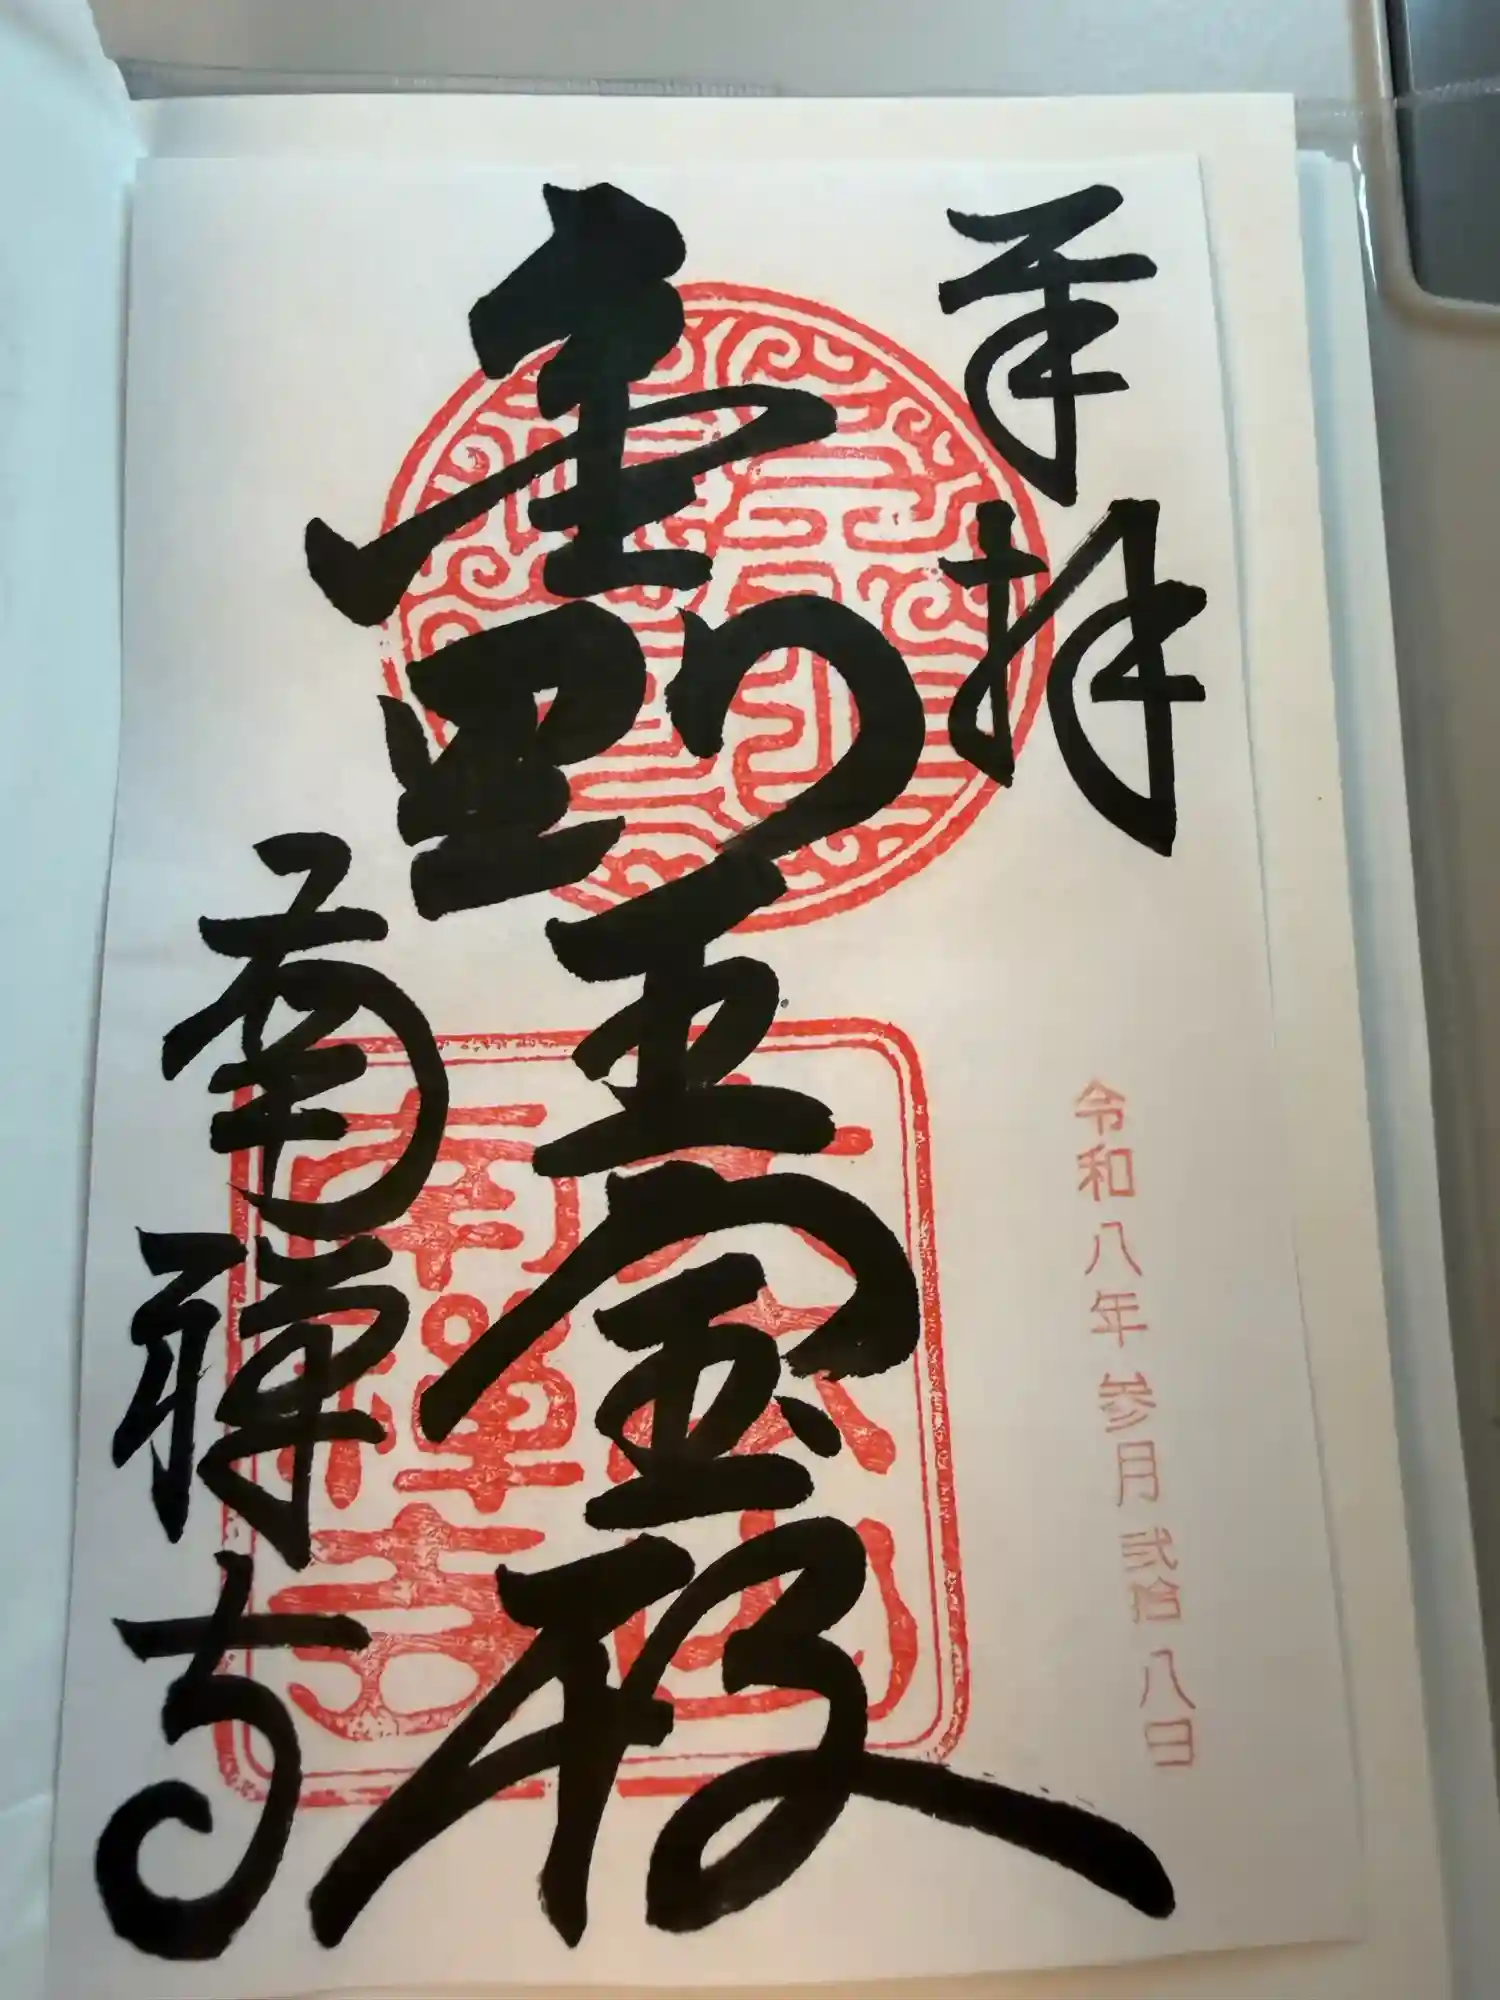 奉拝
令和八年参月弐拾八日
金剛王宝殿
南禅寺